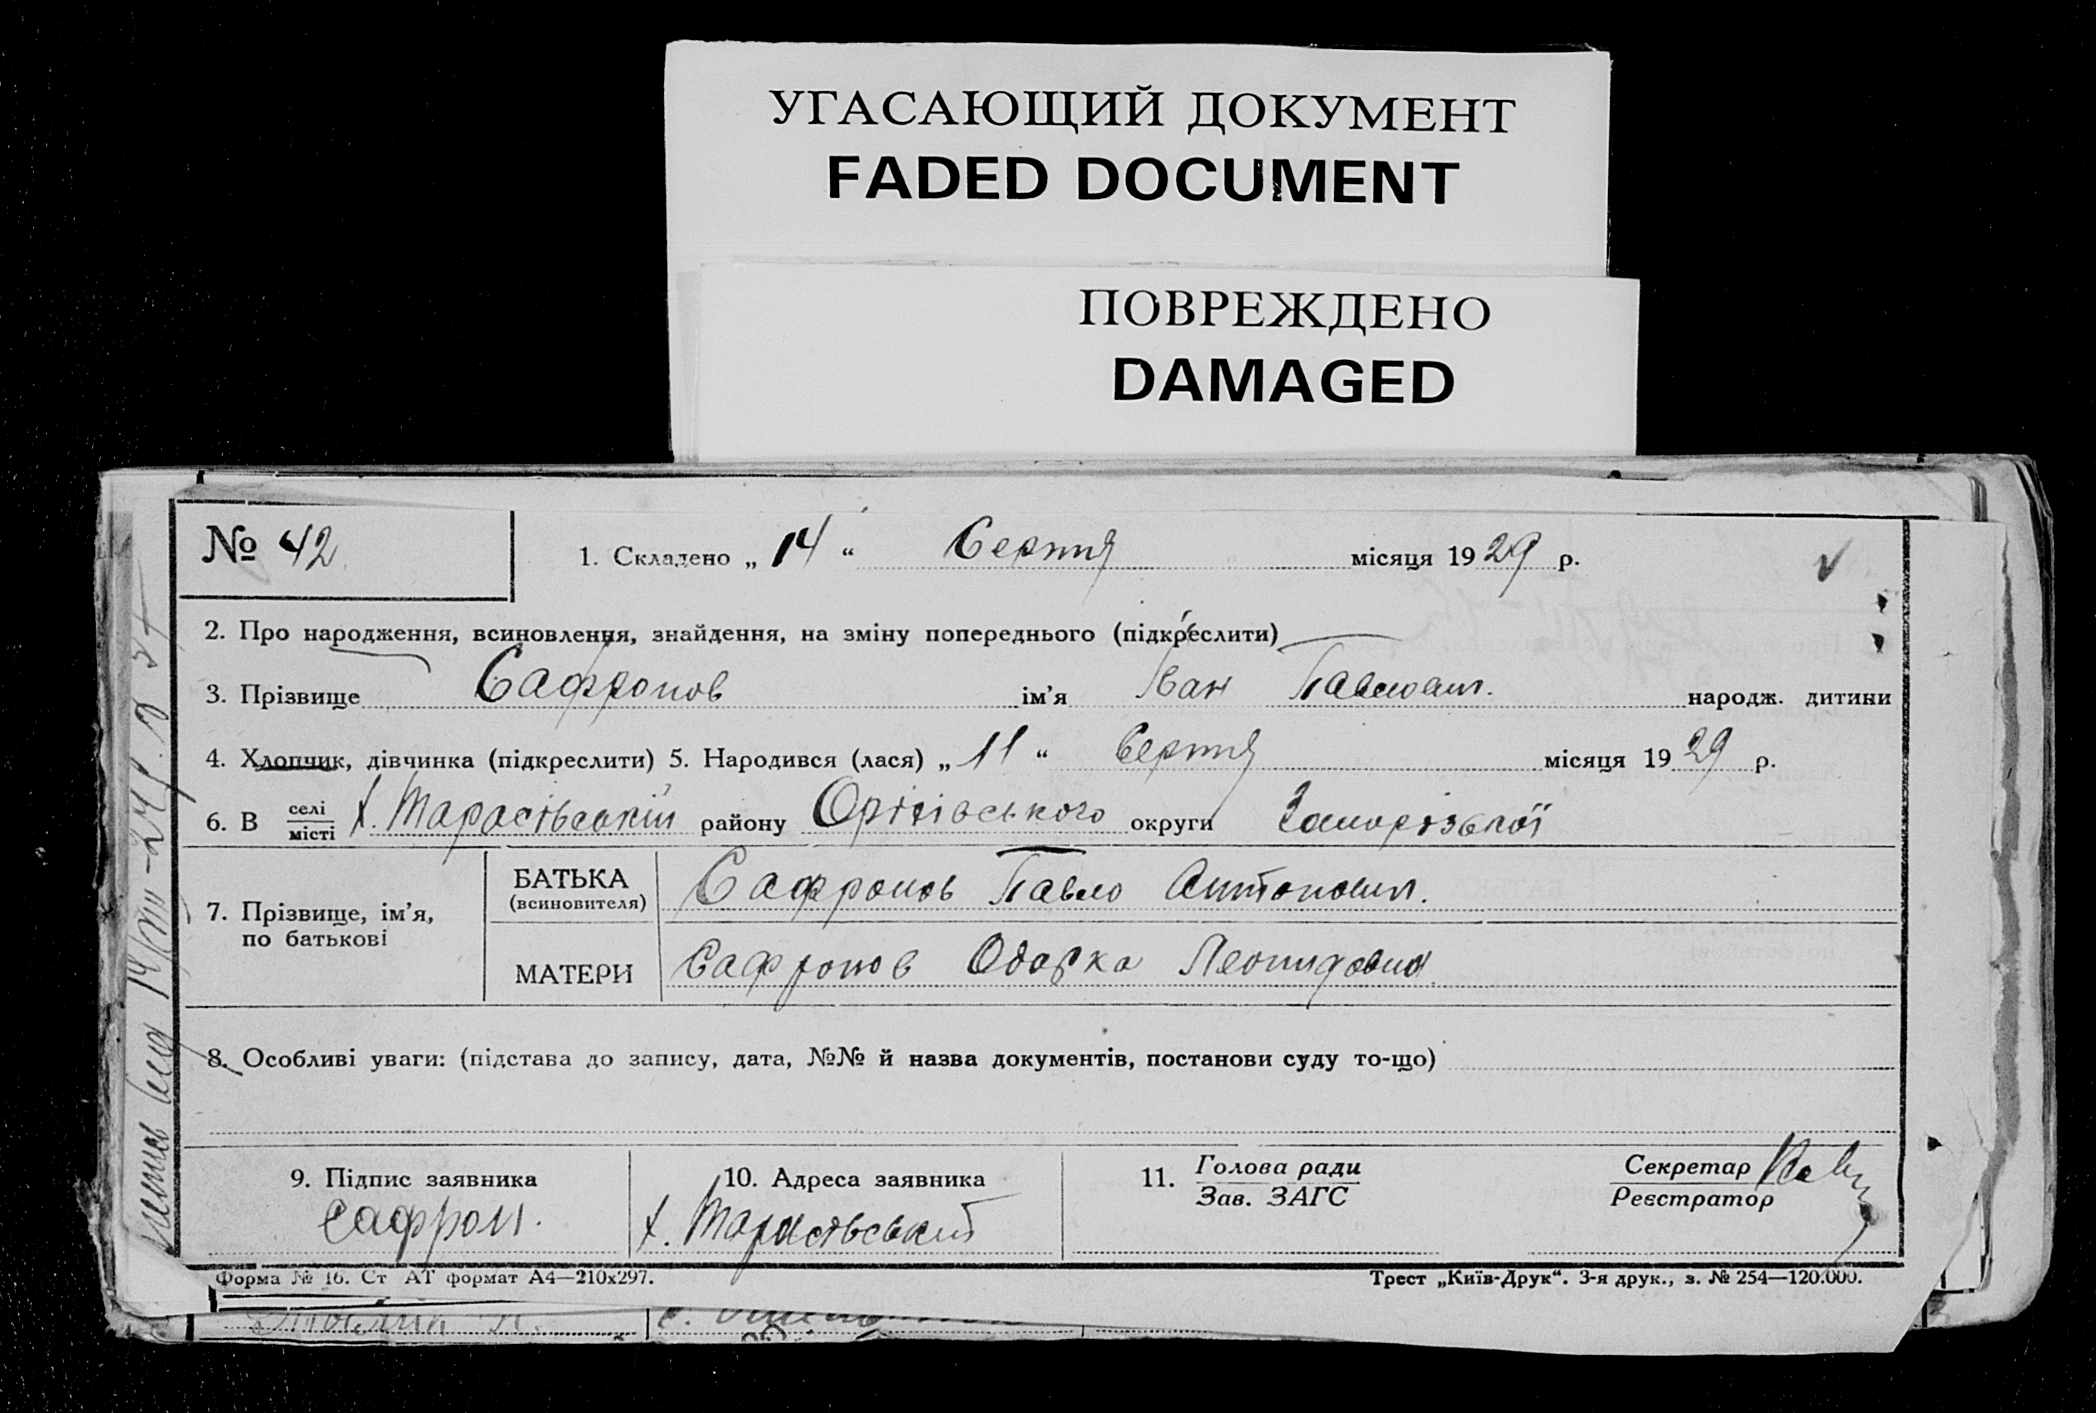 УГАСАЮЩИЙ ДОКУМЕНТ
FADED DOCUMENT
ПОВРЕЖДЕНО
DAMAGED
№ 42
1. Складено „ 14 “ Серпня місяця 1929 р.
2. Про народження, всиновлення, знайдення, на зміну попереднього (підкреслити)
3. Прізвище Сафронов ім’я Іван Павлович. народж. дитини
4. Хлопчик, дівчинка (підкреслити) 5. Народився (лася) „ 11 “ Серпня місяця 1929 р.
6. В селі місті х. Тарасівський району Оріхівського округи Запорізької
7. Прізвище, ім’я, по батькові
БАТЬКА (всиновителя) Сафронов Павло Антонович.
МАТЕРИ Сафронов Одарка Леонидовна
8. Особливі уваги: (підстава до запису, дата, №№ й назва документів, постанови суду то-що)
9. Підпис заявника
Сафрон.
10. Адреса заявника
х. Тарасівський
11. Голова ради
Зав. ЗАГС
Секретар
Реєстратор
Форма № 16. Ст АТ формат А4—210х297.
Трест „Київ-Друк“. 3-я друк., з. № 254—120.000.